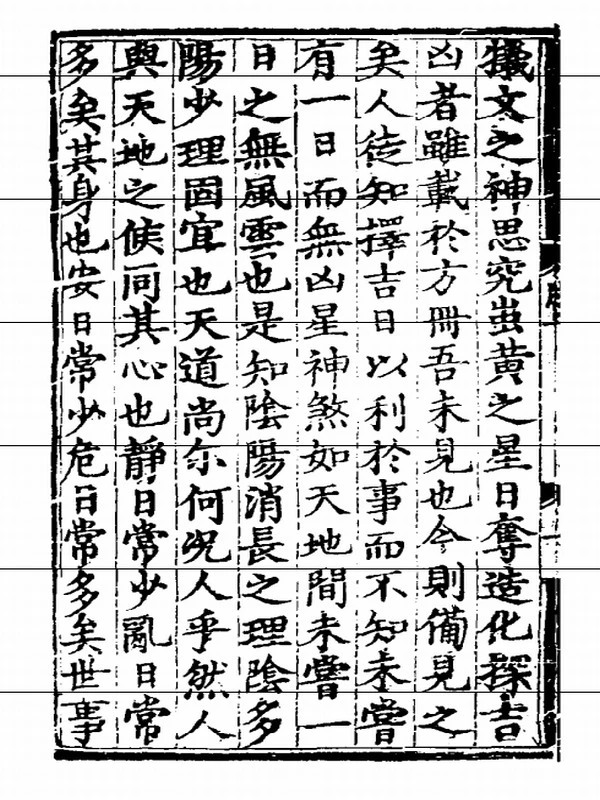 犠文之神思究蚩黄之星日奪造化探吉
凶者雖載於方冊吾未見也今則備見之
矣人徒知擇吉日以利於事而不知未嘗
有一日而無凶星神煞如天地間未嘗一
日之無風雲也是知陰陽消長之理陰多
陽少理固宜也天道尚尓何况人乎然人
與天地之候同其心也靜日常少亂日常
多矣其身也安日常少危日常多矣世事